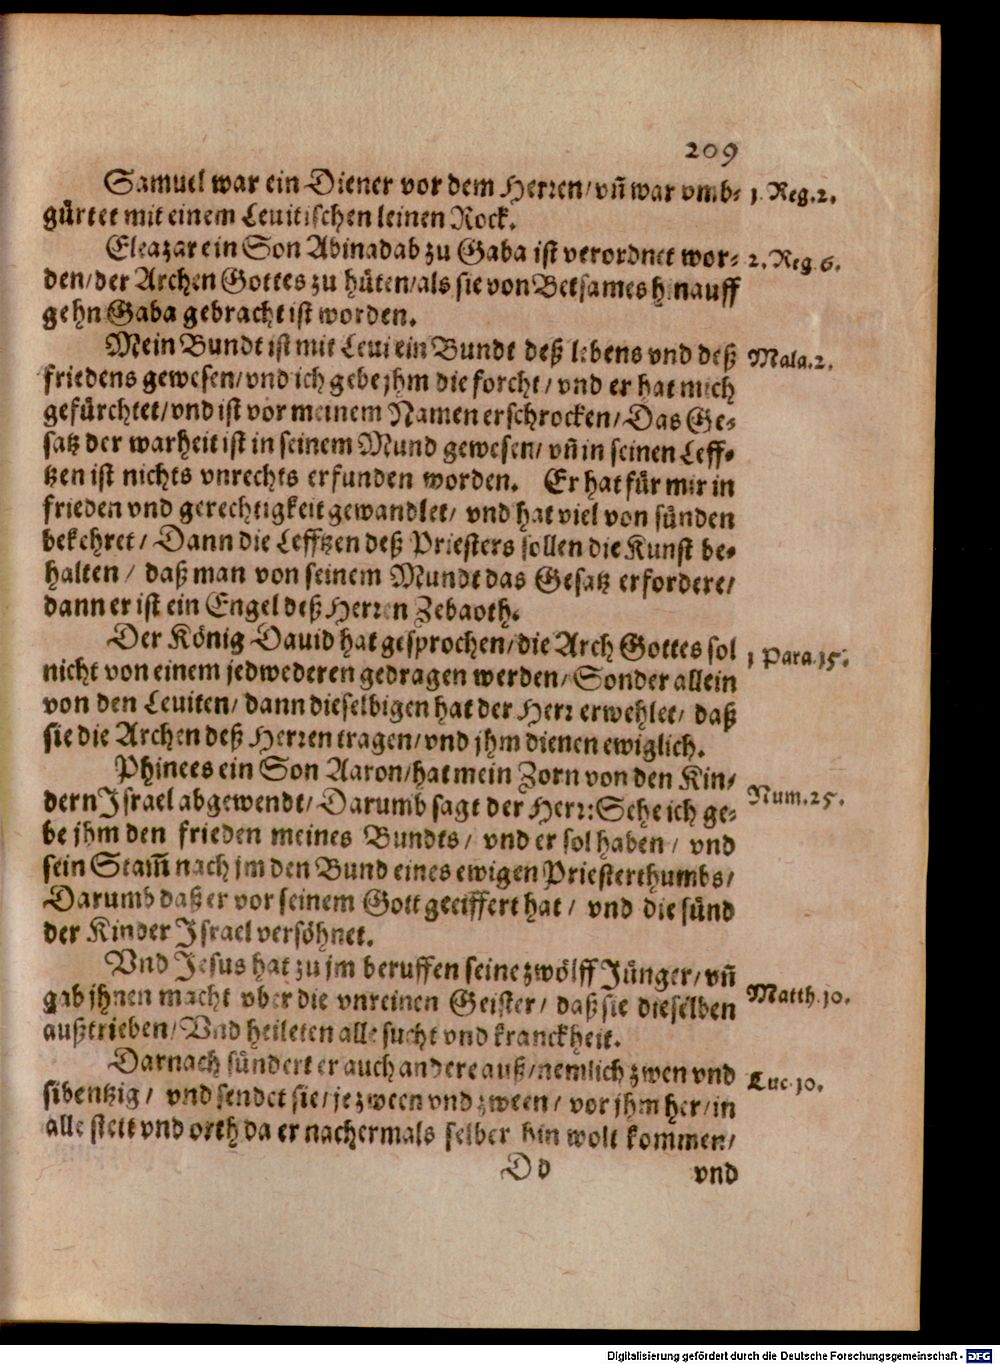 209
Samuel war ein Diener vor dem Herren/ vñ war vmb⸗ 1. Reg. 2.
gürtet mit einem Leuitischen leinen Rock.
Eleazar ein Son Abinadab zu Gaba ist verordnet wor⸗ 2. Reg. 6.
den/ der Archen Gottes zu hüten/ als sie von Betsames hinauff
gehn Gaba gebracht ist worden.
Mein Bundt ist mit Leui ein Bundt deß lebens vnd deß Mala. 2.
friedens gewesen/ vnd ich gebe jhm die forcht/ vnd er hat mich
gefürchtet/ vnd ist vor meinem Namen erschrocken/ Das Ge⸗
satz der warheit ist in seinem Mund gewesen/ vñ in seinen Leff⸗
tzen ist nichts vnrechts erfunden worden. Er hat für mir in
frieden vnd gerechtigkeit gewandlet/ vnd hat viel von sünden
bekehret/ Dann die Lefftzen deß Priesters sollen die Kunst be⸗
halten/ daß man von seinem Mundt das Gesatz erfordere/
dann er ist ein Engel deß Herren Zebaoth.
Der König Dauid hat gesprochen/ die Arch Gottes sol 1 Para. 15.
nicht von einem jedwederen gedragen werden/ Sonder allein
von den Leuiten/ dann dieselbigen hat der Herr erwehlet/ daß
sie die Archen deß Herren tragen/ vnd jhm dienen ewiglich.
Phinees ein Son Aaron/ hat mein Zorn von den Kin⸗ Num. 25.
dern Israel abgewendt/ Darumb sagt der Herr: Sehe ich ge⸗
be jhm den frieden meines Bundts/ vnd er sol haben/ vnd
sein Stam̃ nach jm den Bund eines ewigen Priesterthumbs/
Darumb daß er vor seinem Gott geeiffert hat/ vnd die sünd
der Kinder Israel versöhnet.
Vnd Jesus hat zu jm beruffen seine zwölff Jünger/ vñ
gab jhnen macht vber die vnreinen Geister/ daß sie dieselben Matth. 10.
außtrieben/ Vnd heileten alle sucht vnd kranckheit.
Darnach sündert er auch andere auß/ nemlich zwen vnd Luc. 10.
sibentzig/ vnd sendet sie/ je zween vnd zween/ vor jhm her/ in
alle stett vnd orth da er nachermals selber hin wolt kommen/
Dd vnd
Digitalisierung gefördert durch die Deutsche Forschungsgemeinschaft - DFG